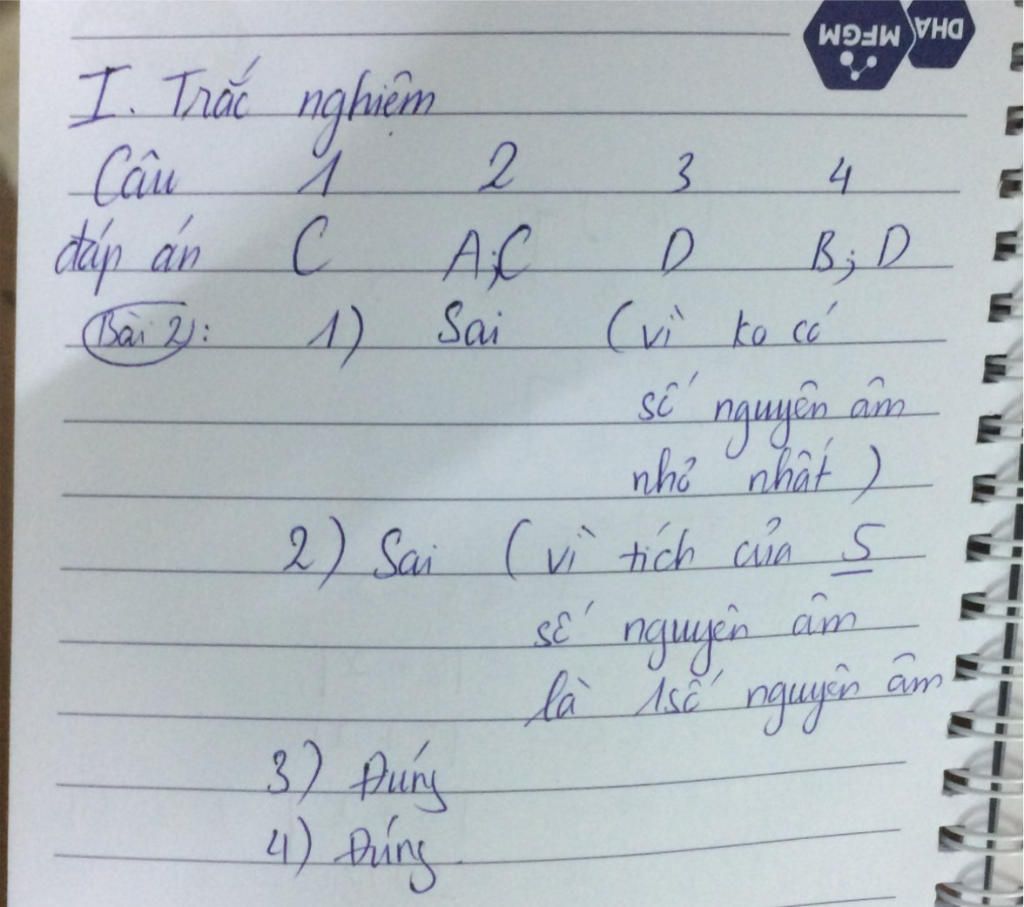 DHA
MFGM
I. Trắc nghiệm
Câu 1 2 3 4
đáp án C A;C D B; D
Bài 2: 1) Sai (vì ko có
số nguyên âm
nhỏ nhất)
2) Sai (vì tích của 5
số nguyên âm
là 1 số nguyên âm
3) Đúng
4) Đúng.